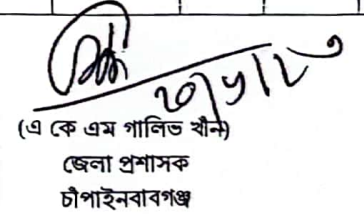 (এ কে এম গালিভ খাঁন)
জেলা প্রশাসক
চাঁপাইনবাবগঞ্জ